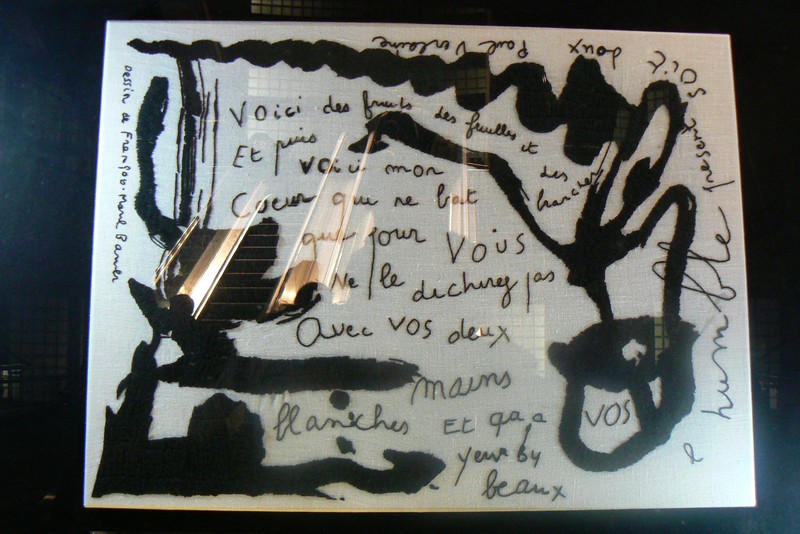 Voici des fruits des feuilles et
des
branches
Et puis voici mon
Coeur qui ne bat
que pour vous
Ne le dechirez pas
Avec vos deux
mains
blanches Et qa a
VOS
yeux by
beaux
l humble present soit
doux Paul Verlaine
Dessin de